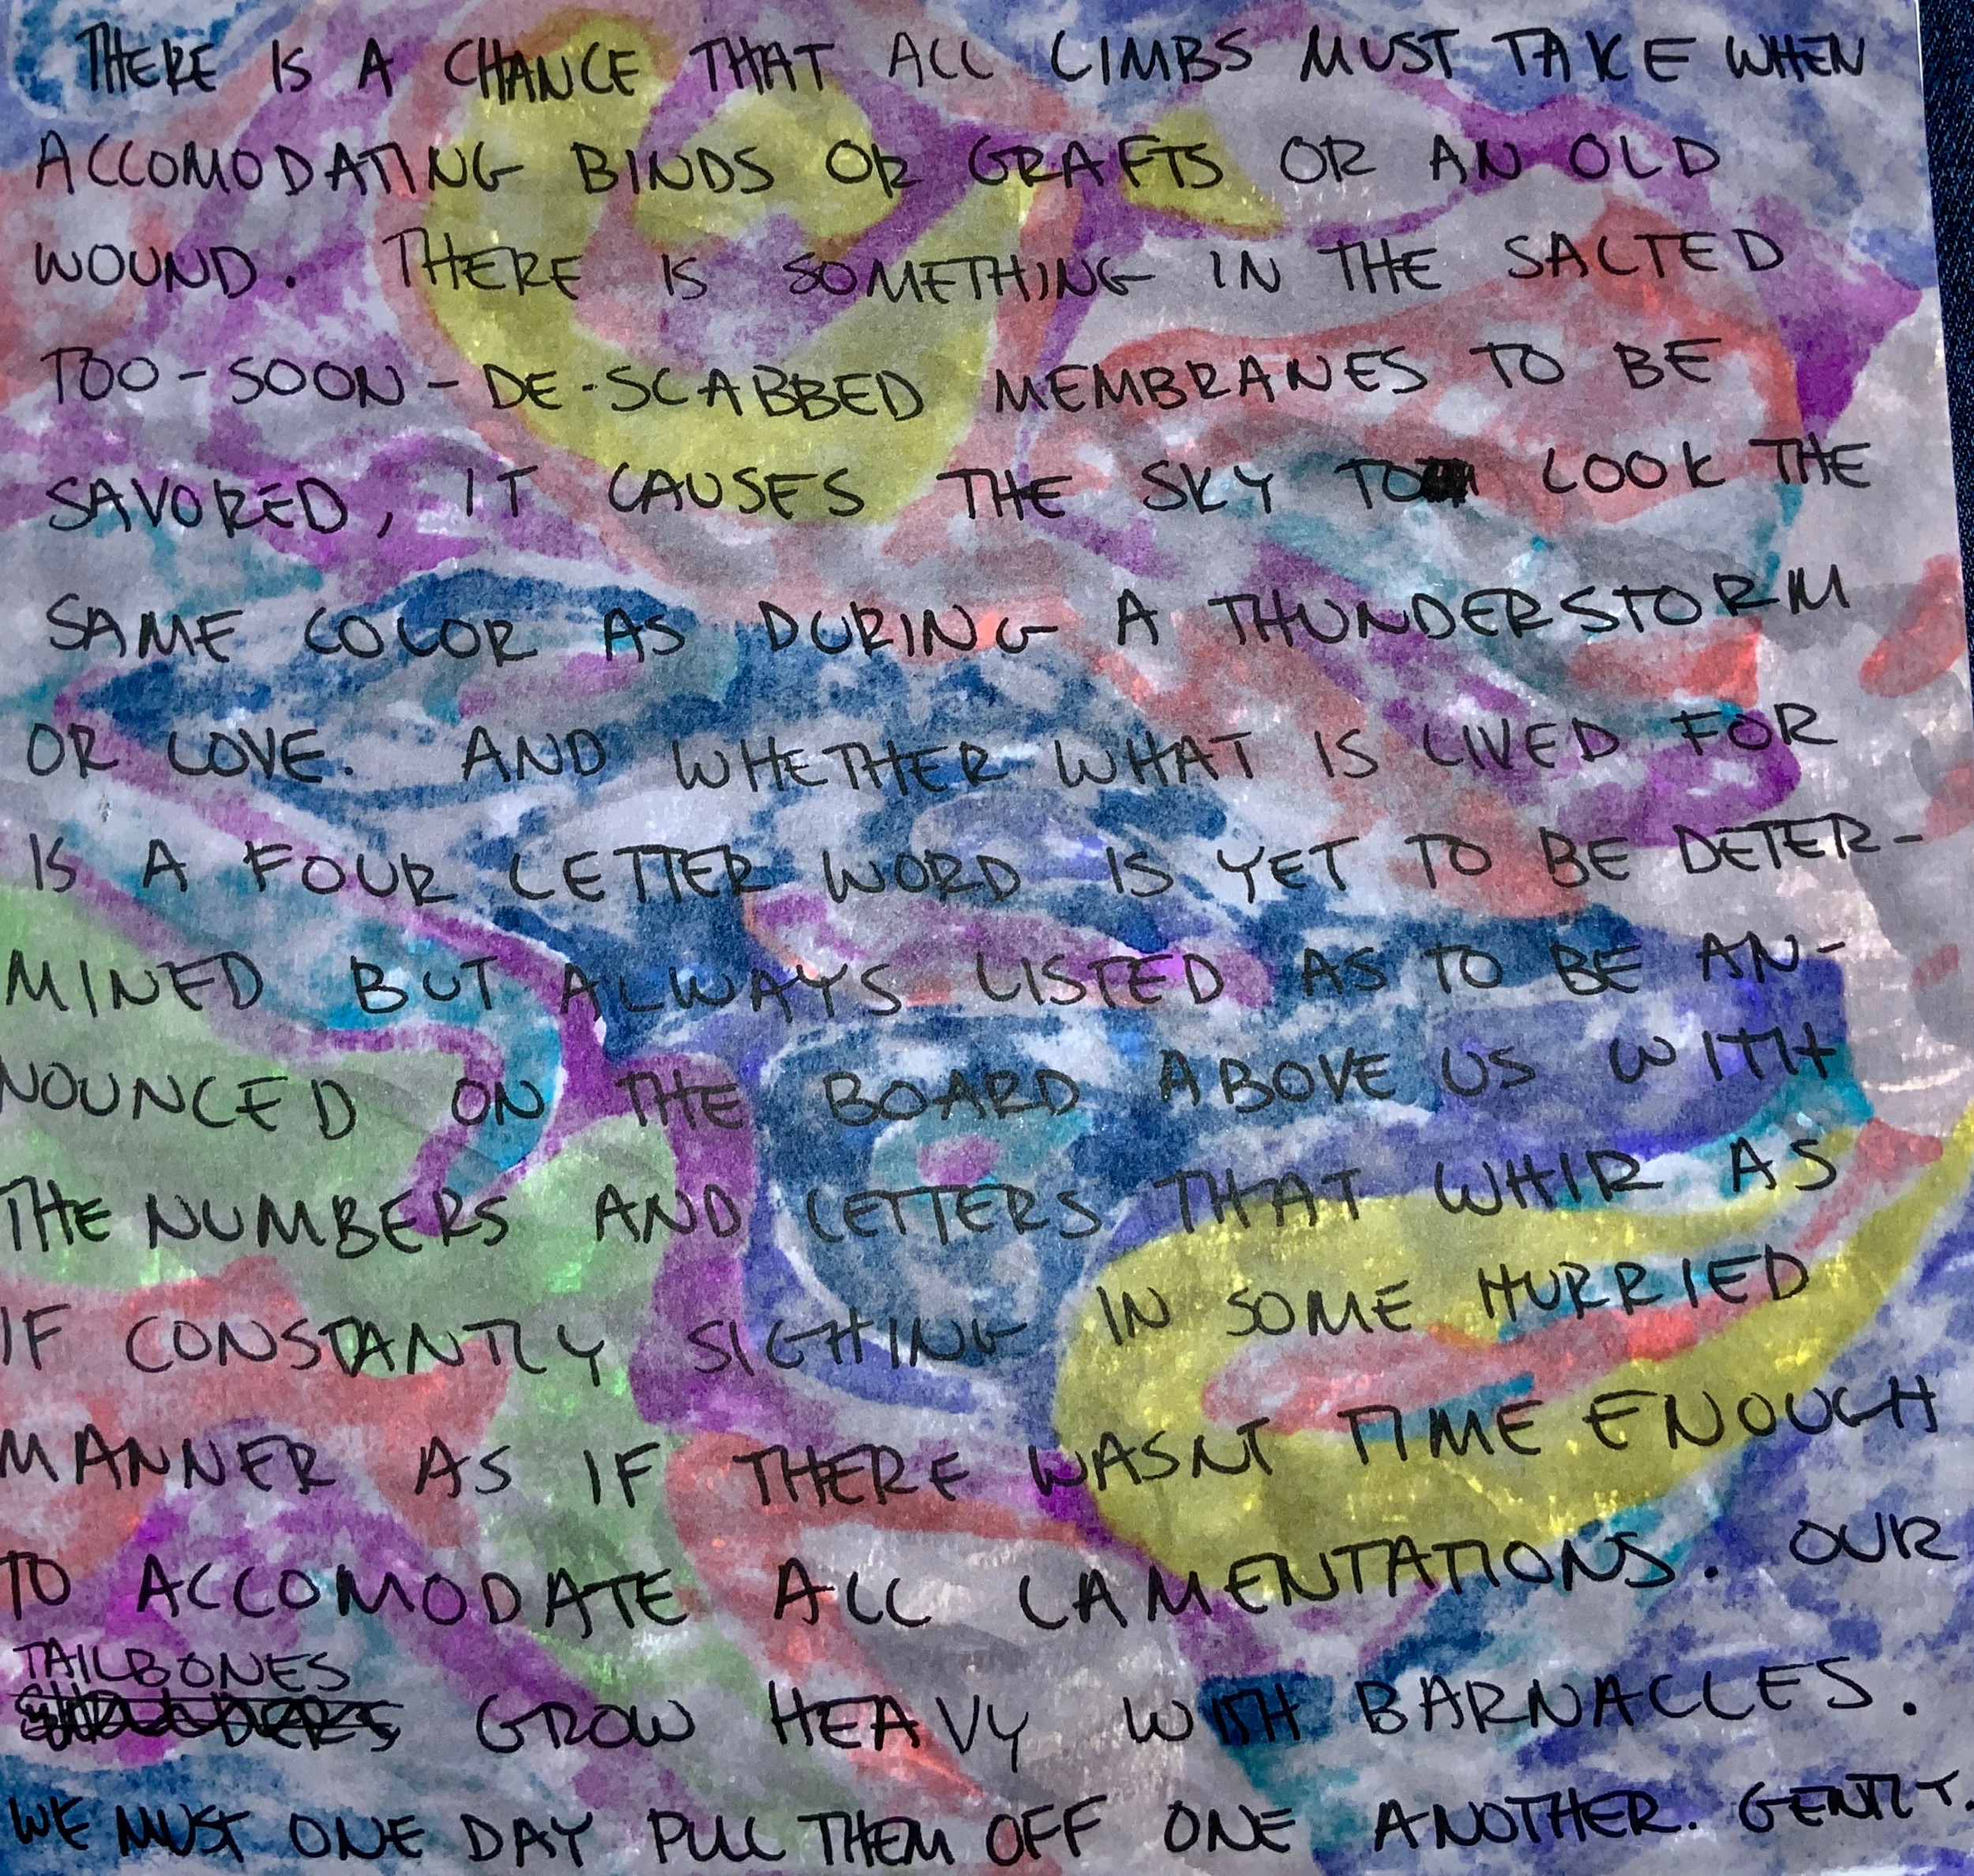 THERE IS A CHANCE THAT ALL LIMBS MUST TAKE WHEN
ACCOMODATING BINDS OR GRAFTS OR AN OLD
WOUND. THERE IS SOMETHING IN THE SALTED
TOO-SOON-DE-SCABBED MEMBRANES TO BE
SAVORED, IT CAUSES THE SKY TO LOOK THE
SAME COLOR AS DURING A THUNDERSTORM
OR LOVE. AND WHETHER WHAT IS LIVED FOR
IS A FOUR LETTER WORD IS YET TO BE DETER-
MINED BUT ALWAYS LISTED AS TO BE AN-
NOUNCED ON THE BOARD ABOVE US WITH
THE NUMBERS AND LETTERS THAT WHIR AS
IF CONSTANTLY SIGHING IN SOME HURRIED
MANNER AS IF THERE WASNT TIME ENOUGH
TO ACCOMODATE ALL LAMENTATIONS. OUR
TAILBONES
GROW HEAVY WITH BARNACLES.
WE MUST ONE DAY PULL THEM OFF ONE ANOTHER. GENTLY.